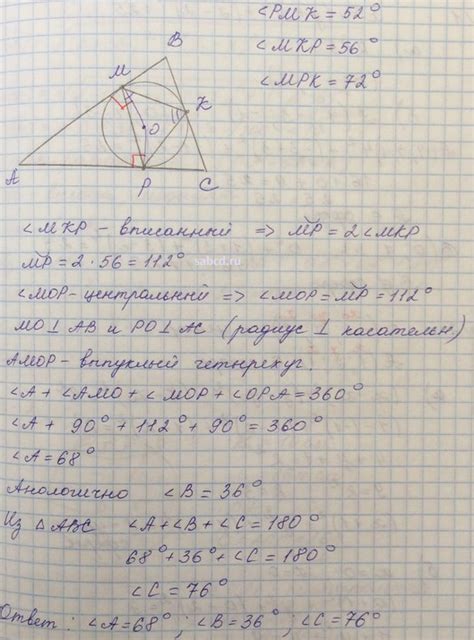 ∠PMK = 52°
∠MKP = 56°
∠MPK = 72°
B
M
K
O
A
P
C
∠MKP - вписанный => M͝P = 2∠MKP
sabcd.ru
M͝P = 2 · 56 = 112°
∠MOP - центральный => ∠MOP = M͝P = 112°
MO ⊥ AB и PO ⊥ AC (радиус ⊥ касательн)
AMOP - выпуклый четырехуг.
∠A + ∠AMO + ∠MOP + ∠OPA = 360°
∠A + 90° + 112° + 90° = 360°
∠A = 68°
Анологично ∠B = 36°
Из △ABC ∠A + ∠B + ∠C = 180°
68° + 36° + ∠C = 180°
∠C = 76°
Ответ: ∠A = 68° ; ∠B = 36° ; ∠C = 76°